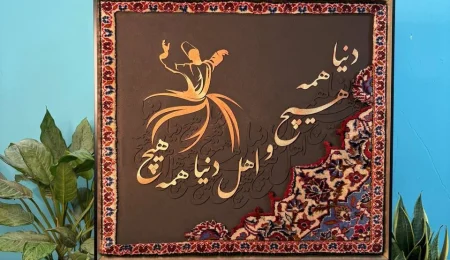 دنیا
همه
هیچ
و اهل دنیا همه هیچ